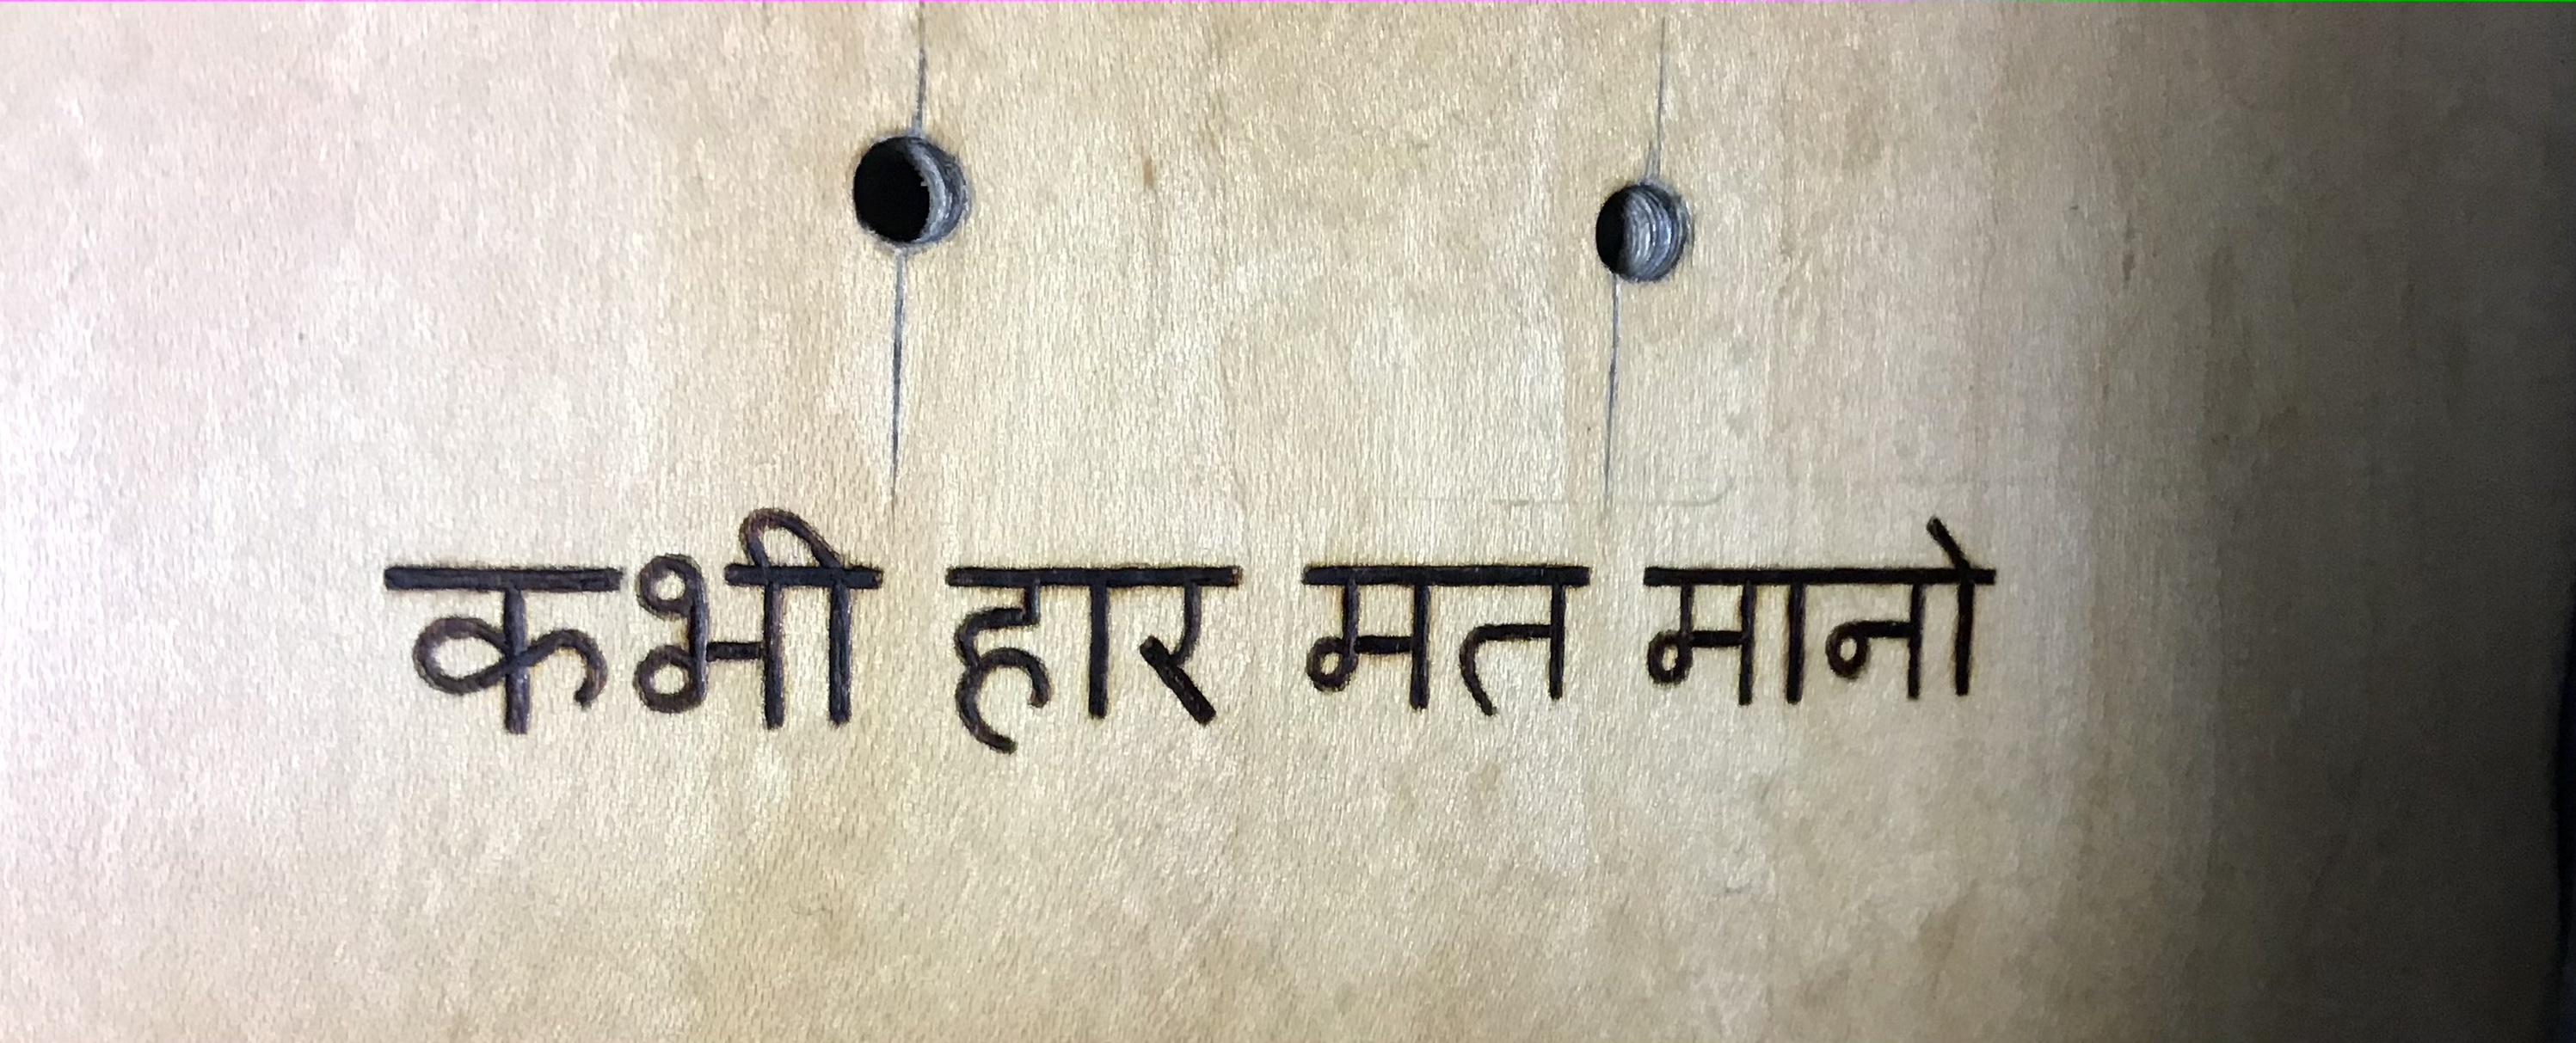 कभी हार मत मानो